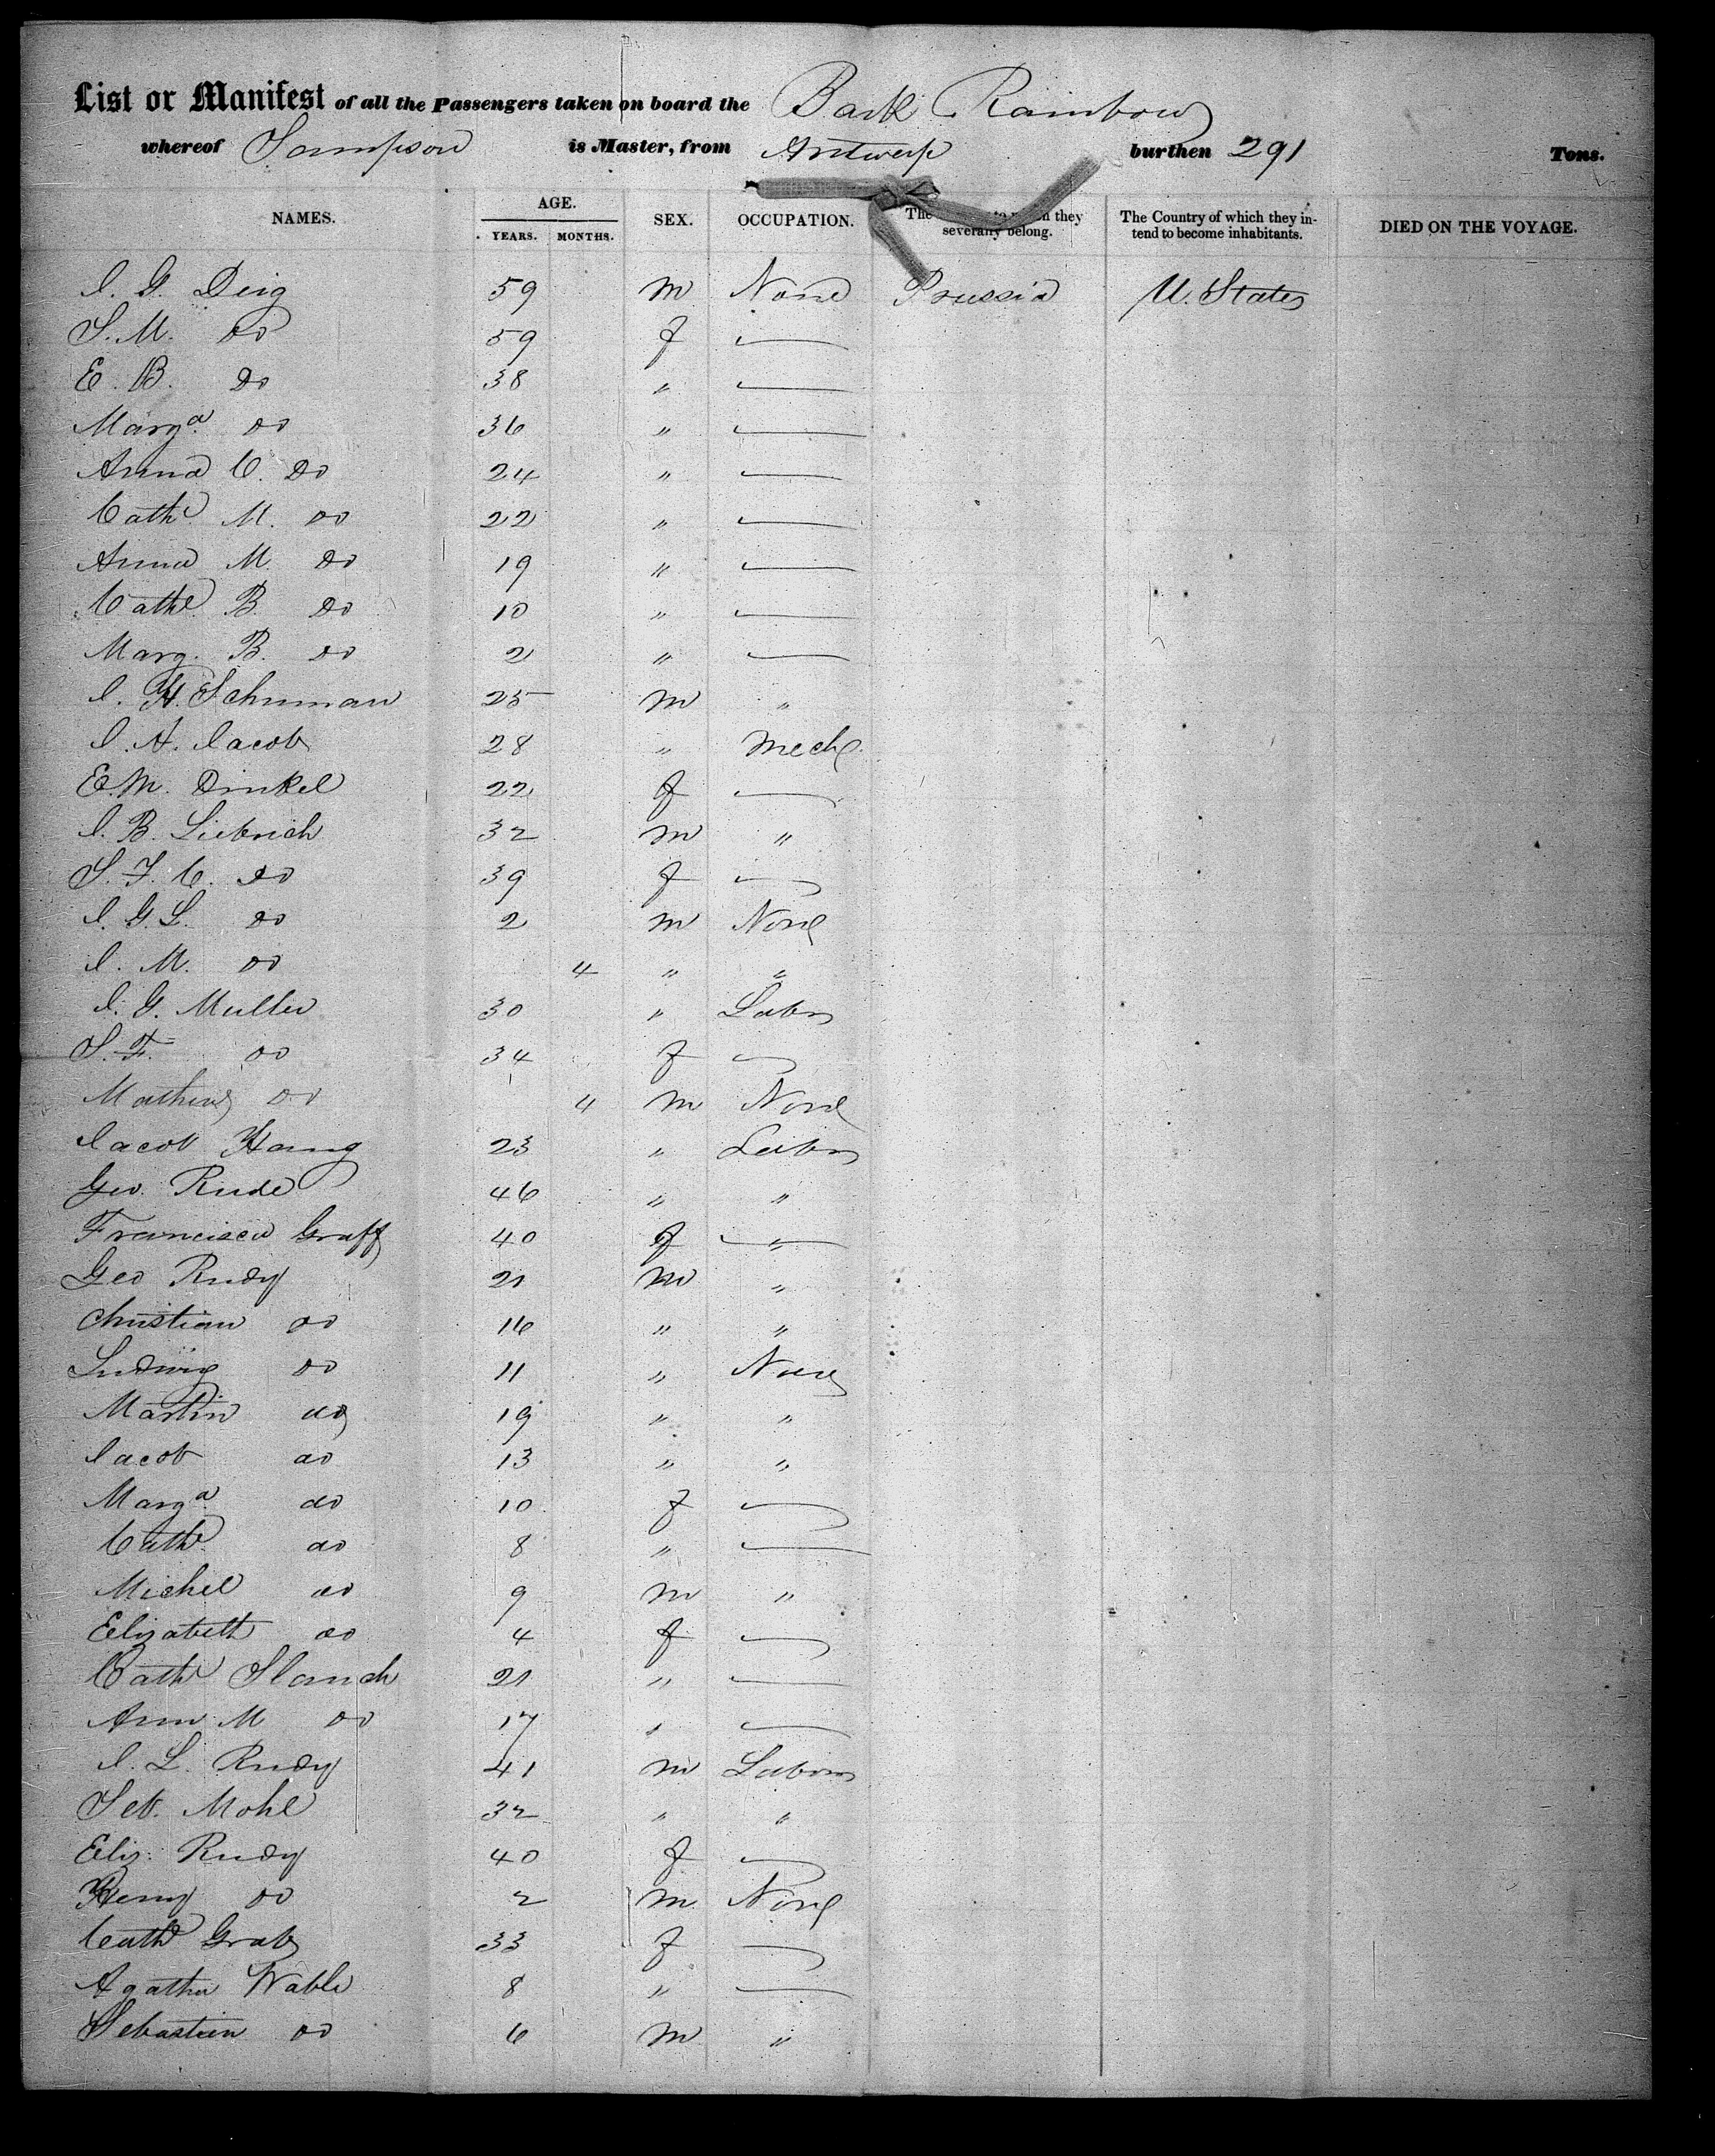 List or Manifest of all the Passengers taken on board the Bark Rainbow
whereof Sampson is Master, from Antwerp burthen 291 Tons.
NAMES. AGE. YEARS. MONTHS. SEX. OCCUPATION. The they severally belong. The Country of which they intend to become inhabitants. DIED ON THE VOYAGE.
I. G. Deig 59 m None Prussia U. States
S. M. Do 59 f —
E. B. Do 38 " —
Marga. Do 36 " —
Anna C. Do 24 " —
Cathe M. Do 22 " —
Anna M. Do 19 " —
Cathe B. Do 10 " —
Marg. B. Do 2 " —
I. H. Schuman 25 m "
I. A. Jacob 28 " Mech.
E. M. Dinkel 22 f —
I. B. Liebrich 32 m "
S. F. C. Do 39 f —
I. G. L. Do 2 m None
I. M. Do 4 " "
I. G. Muller 30 " Labr
S. F. Do 34 f —
Mathew Do 4 m None
Jacob 23 " Labr
Geo. Rude 46 " "
Francisca Graff 40 f — "
Geo Rudy 21 m "
Christian Do 16 " "
Ludwig Do 11 " None
Martin do 19 " "
Jacob do 13 " "
Marga. do 10 f —
Cathe. do 8 " —
Michel do 9 m "
Elizabeth do 4 f —
Cathe 21 " —
Ann M Do 17 " —
I. L. Rudy 41 m Labor
Seb. Mohl 32 " "
Eliz. Rudy 40 f —
Henry Do 2 m None
Cathe Grab 33 f —
Agatha Wable 8 " —
Sebastien Do 6 m "